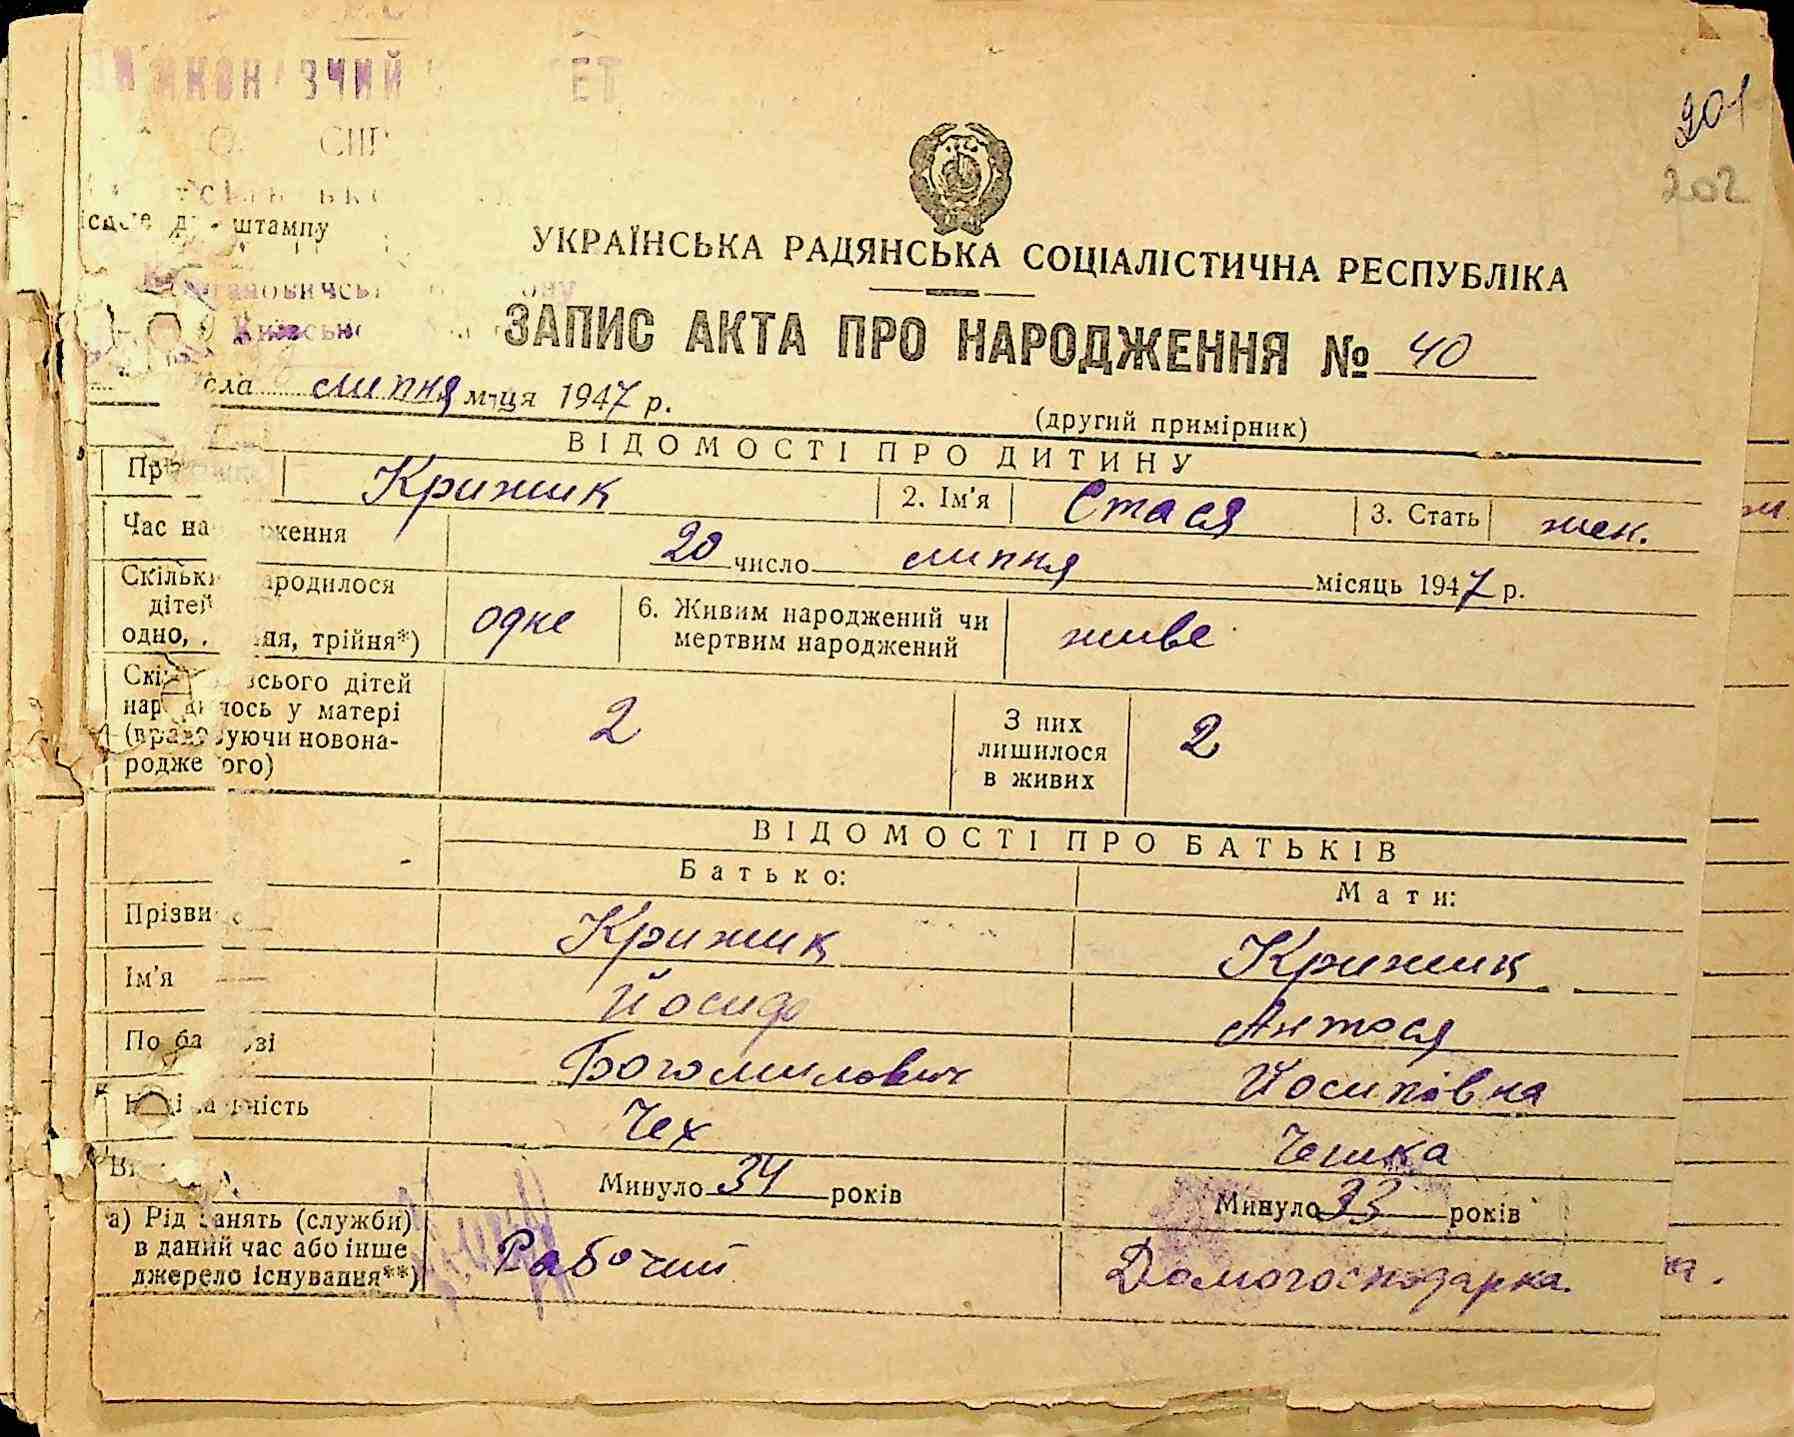 201
202
штампу
УКРАЇНСЬКА РАДЯНСЬКА СОЦІАЛІСТИЧНА РЕСПУБЛІКА
ЗАПИС АКТА ПРО НАРОДЖЕННЯ № 40
липня м-ця 1947 р.
(другий примірник)
ВІДОМОСТІ ПРО ДИТИНУ
Крижик 2. Ім'я Стася 3. Стать жен.
Час на ження 20 число липня місяць 1947 р.
Скільки ародилося
дітей
одно, ня, трійня*)
одне
6. Живим народжений чи
мертвим народжений
живе
всього дітей
нар лось у матері
(врах уючи новона-
родже ого)
2
З них
лишилося
в живих
2
ВІДОМОСТІ ПРО БАТЬКІВ
Батько: Мати:
Прізви Крижик Крижик
Ім'я Йосиф Антося
По ба ові Богомилович Йосипівна
ність Чех Чешка
Минуло 34 років Минуло 33 років
а) Рід занять (служби)
в даний час або інше
джерело існування**)
Рабочий Домогосподарка.